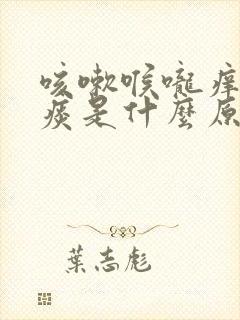 咳嗽喉嚨痒
痰是什麼原
葉志彪